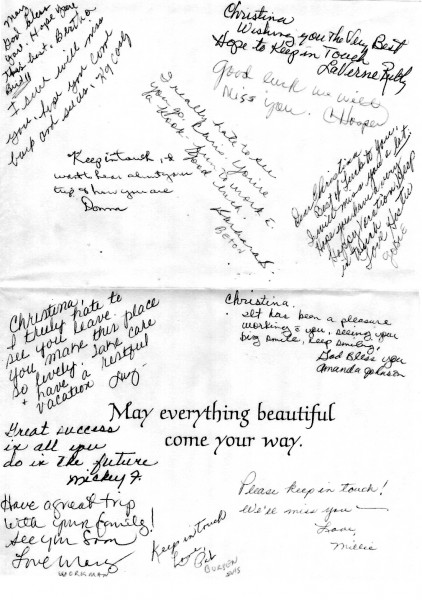 May
God Bless
You. Hope you
Bertha
I sure will miss
you. Just you come
back and see us.
Christina
Wishing you The Very Best
Hope to Keep in Touch
LaVerne
Good luck we will
Miss you.
Hooper
I really hate to see
you go,
Good luck.
Barbara
Keep in touch, I
want to hear about your
trip & how you are
Donna
Dear Christina,
Best of Luck to you,
I will miss you a lot.
Hope you have a very
Happy Vacation. Keep
in touch.
Love
Christina,
I truly hate to
see you leave.
You make this place
so lively. Take care
+ have a restful
vacation
Christina,
It has been a pleasure
working c̄ you, seeing your
big smile, keep smiling!
God Bless you
Amanda Johnson
May everything beautiful
come your way.
Great success
in all you
do in the future
Mickey F.
Have a great trip
with your family!
See you Soon
Love Mary
WORKMAN
Keep in touch
Love,
Pat
Please keep in touch!
We'll miss you
Love,
Millie